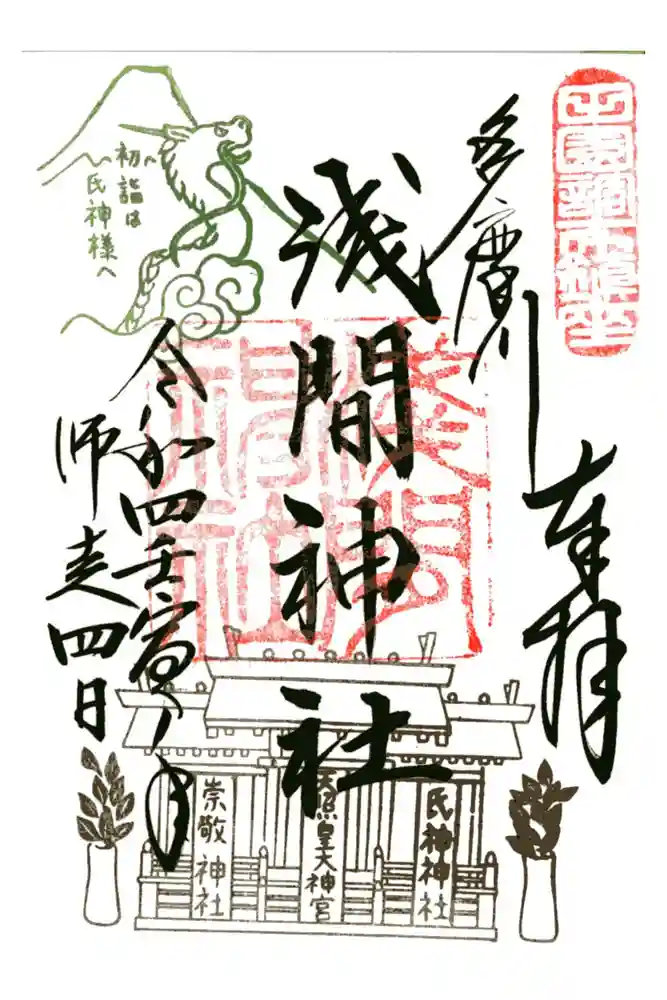 田園調布鎮座
多摩川
奉拝
浅間神社
令和四壬寅年
師走四日
初詣は
氏神様へ
氏神神社
天照皇大神宮
崇敬神社